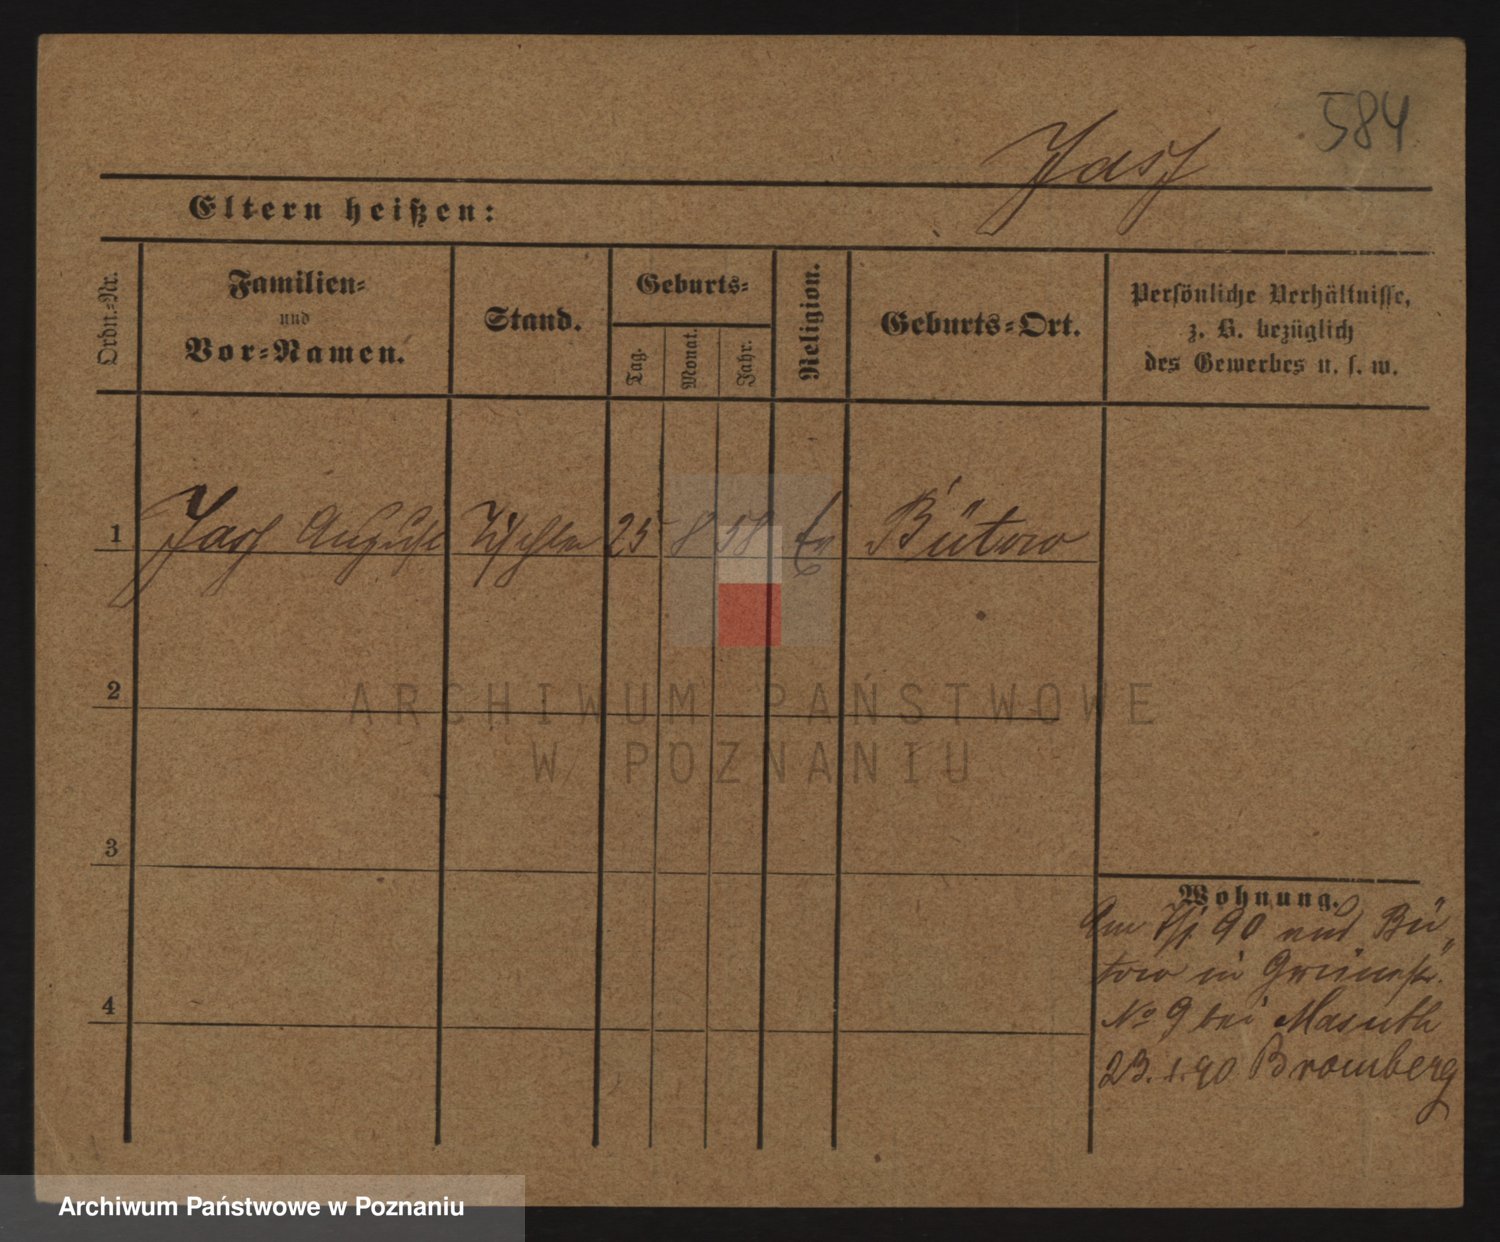 584
Jass
Eltern heißen:
Ordn.-Nr.
Familien-
und
Vor-Namen.
Stand.
Geburts-
Tag.
Monat.
Jahr.
Religion.
Geburts-Ort.
Persönliche Verhältnisse,
z. B. bezüglich
des Gewerbes u. s. w.
1 Jass August Tischler 25 8 58 Ev Bütow
2
3
4
Wohnung.
Am 90 Bü
tow in Grünestr.
No 9 bei Masuth
23. 1. 90 Bromberg
ARCHIWUM PAŃSTWOWE
W POZNANIU
Archiwum Państwowe w Poznaniu